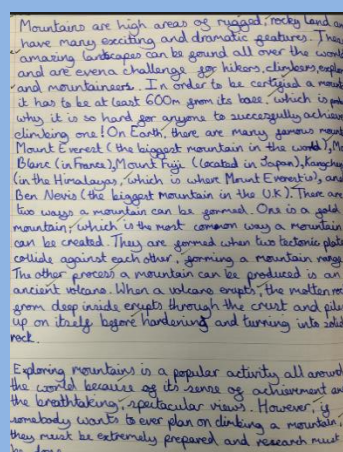 Mountains are high areas of rugged, rocky land an
have many exciting and dramatic features. These
amazing lantscapes can be found all over the world
and are even a challenge for hikers, climbers, explor
and mountaineers. In order to be certified a mount
it has to be at least 600m from its base, which is prob
why it is so hard for anyone to successfully achieve
climbing one! On Earth, there are many famous mount
Mount Everest (the biggest mountain in the world), Mo
Blanc (in France), Mount Fuji (located in Japan), Kangchen
(in the Himalayas, which is where Mount Everest is), and
Ben Nevis (the biggest mountain in the U.K). There are
two ways a mountain can be formed. One is a fold
mountain, which is the most common way a mountain
can be created. They are formed when two tectonic plate
collide against each other, forming a mountain range.
The other process a mountain can be produced is an
ancient volcano. When a volcano erupts, the molten roc
from deep inside erupts through the crust and piles
up on itself before hardening and turning into solid
rock.
Exploring mountains is a popular activity all around
the world because of its sense of achievement an
the breathtaking, spectacular views. However, if
somebody wants to ever plan on climbing a mountain,
they must be extremely prepared and research must
be done